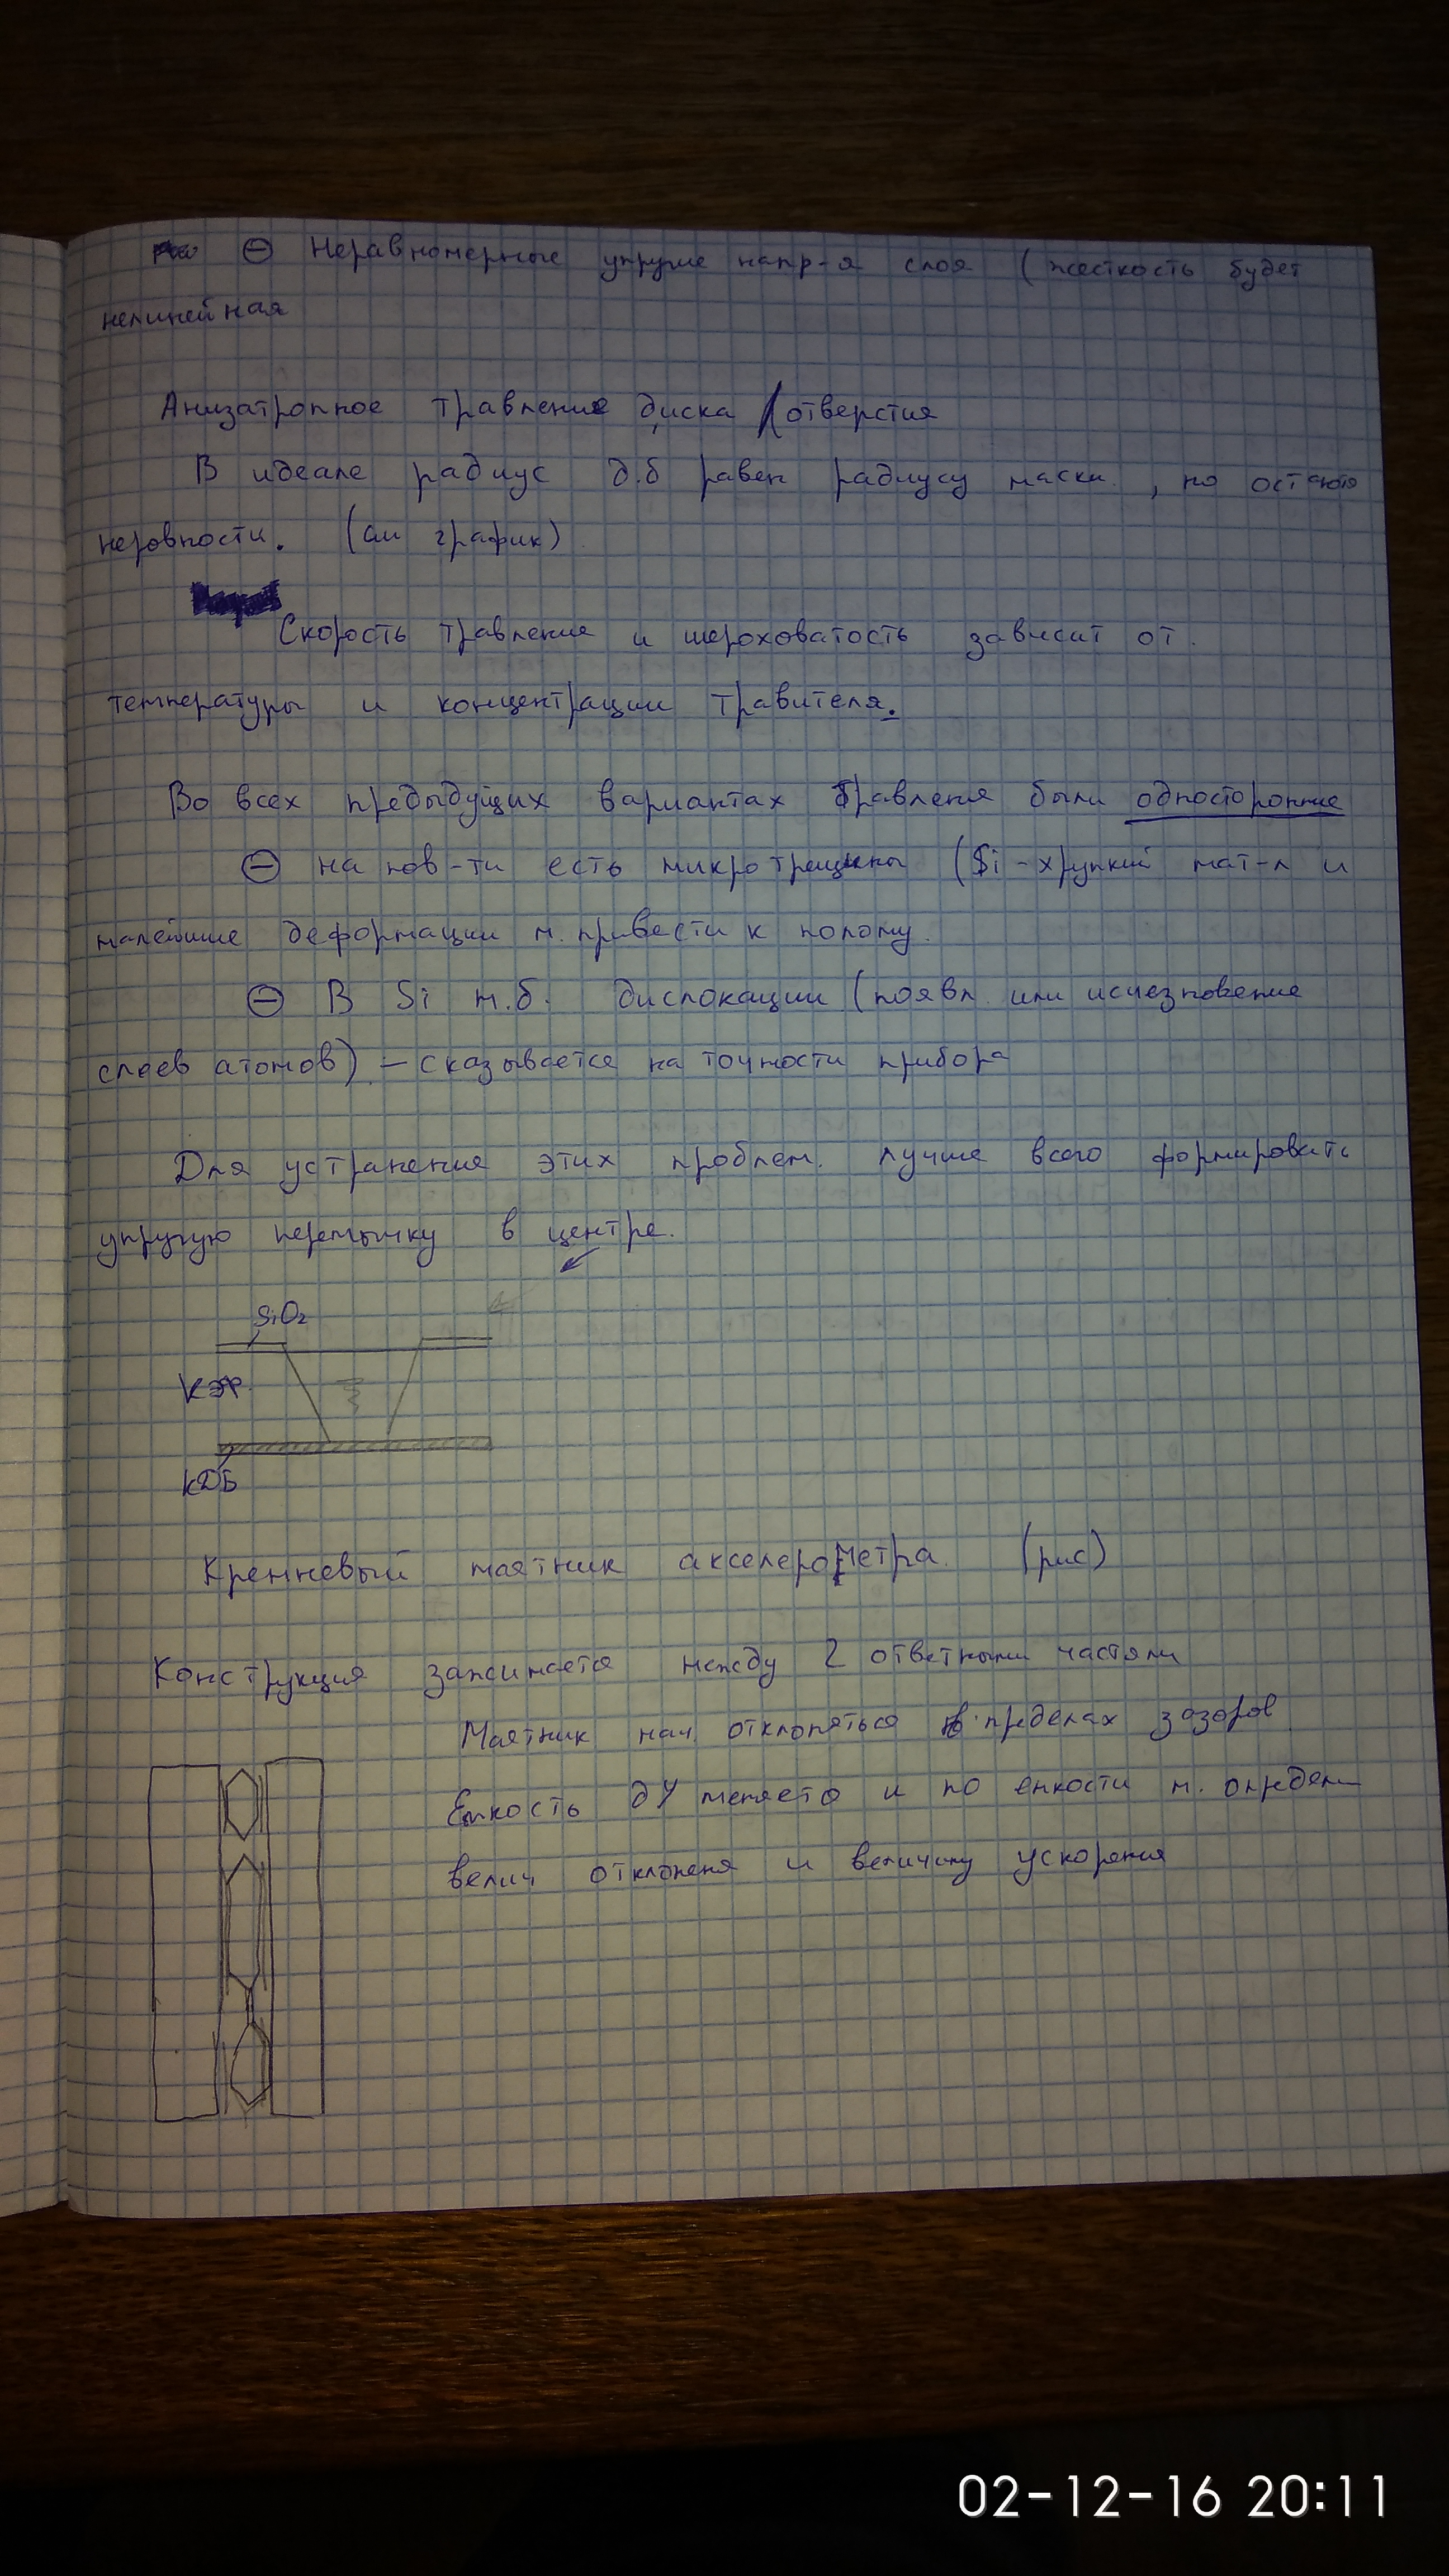 ⊖ Неравномерные упругие напр-я слоя (жесткость будет
нелинейная
Анизатропное травление диска / отверстия
В идеале радиус д.б равен радиусу маски, но остаются
неровности. (см график)
Скорость травления и шероховатость зависит от
температуры и концентрации травителя.
Во всех предыдущих вариантах травления были односторонние
⊖ на пов-ти есть микротрещины (Si - хрупкий мат-л и
малейшие деформации м. привести к полому.
⊖ В Si м.б. дислокации (появл. или исчезновение
слоев атомов) - сказывается на точности прибора
Для устранения этих проблем лучше всего формировать
упругую перемычку в центре.
SiO₂
КЭФ
КДБ
Кремневый маятник акселерометра (рис)
Конструкция зажимается между 2 ответными частями
Маятник нач. отклоняться в пределах зазоров
Емкость ДУ меняется и по емкости м. определ
велич отклоненя и величину ускорения
02-12-16 20:11